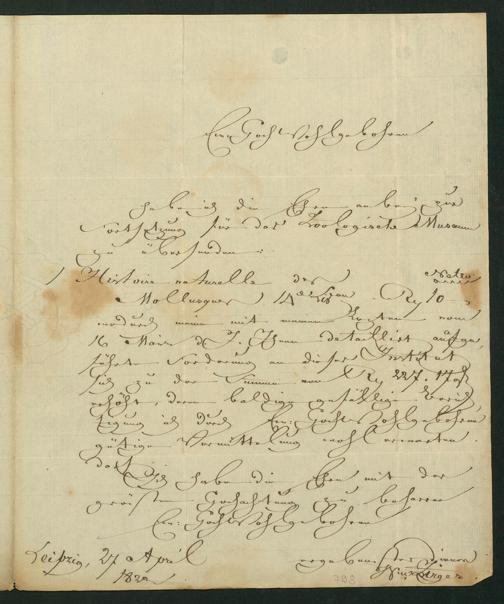 Ew: Hochwohlgebohren
habe ich die Ehre anbei zur
Fortsetzung für das Zoologische Museum
zu übersenden:
1 Histoire naturelle des
Mollusques
wodurch meine mit meinem vom
16 März d. J. Ihnen detaillirt aufge,
führte Forderung an dieses Institut
sich zu der Summe von 227. 17
erhöht, deren baldige gefällige Berich,
tigung ich durch Ew: Hochwohlgebohren
gütige Vermittelung wohl erwarten
darf. Ich habe die Ehre mit der
Hochachtung zu beharren
Ew: Hochwohlgebohren
Leipzig, 27 April
ergebenster Diener
793